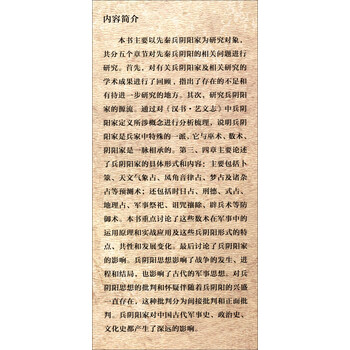 内容简介
本书主要以先秦兵阴阳家为研究对象，
共分五个章节对先秦兵阴阳的相关问题进行
研究。首先，对有关兵阴阳家及相关研究的
学术成果进行了回顾，指出了存在的不足和
有待进一步研究的地方。其次，研究兵阴阳
家的源流。通过对《汉书·艺文志》中兵阴
阳家定义所涉概念进行分析梳理，说明兵阴
阳家是兵家中特殊的一派，它与巫术、数术、
阴阳家是一脉相承的。第三、四章主要论述
了兵阴阳家的具体形式和内容；主要包括卜
筮、天文气象占、风角音律占、梦占及诸杂
占等预测术；还包括时日占、刑德、式占、
地理占、军事祭祀、诅咒禳除、辟兵术等防
御术。本书重点讨论了这些数术在军事中的
运用原理和实战应用及这些兵阴阳形式的特
点、共性和发展变化。最后讨论了兵阴阳家
的影响。兵阴阳思想影响了战争的发生、进
程和结局，也影响了古代的军事思想。对兵
阴阳思想的批判和怀疑伴随着兵阴阳的兴盛
一直存在，这种批判分为间接批判和正面批
判。兵阴阳家对中国古代军事史、政治史、
文化史都产生了深远的影响。